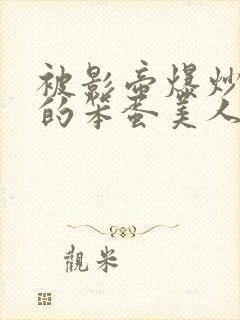 被影帝爆炒
的笨蛋美人
觀米